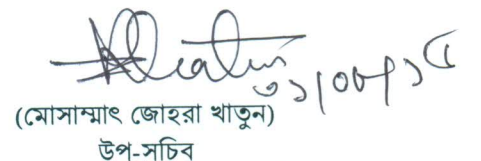 ৩১/০৮/১৫
(মোসাম্মাৎ জোহরা খাতুন)
উপ-সচিব